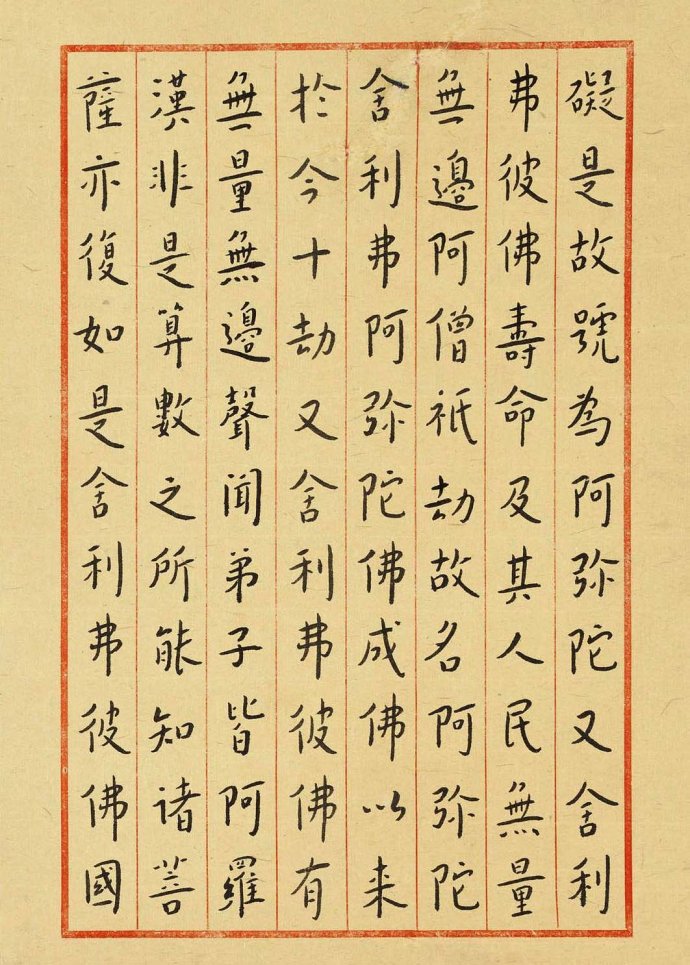 礙是故號為阿弥陀又舍利
弗彼佛壽命及其人民無量
無邊阿僧祇劫故名阿弥陀
舍利弗阿弥陀佛成佛以来
於今十劫又舍利弗彼佛有
無量無邊聲聞弟子皆阿羅
漢非是算數之所能知諸菩
薩亦復如是舍利弗彼佛國